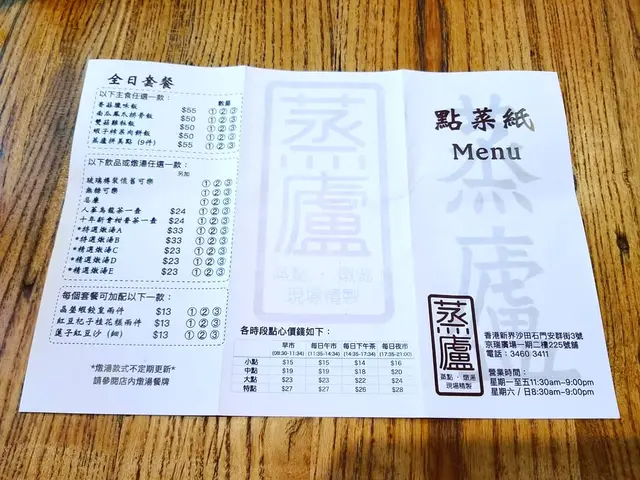 全日套餐
以下主食任選一款：
數量
香菇臘味飯 $55 ①②③
南瓜鳳爪排骨飯 $50 ①②③
雙菇雞粒飯 $50 ①②③
蝦子蒸肉餅飯 $50 ①②③
蒸廬拼美點 (9件) $55 ①②③
以下飲品或燉湯任選一款：
另加
玻璃樽裝懷舊可樂 ①②③
無糖可樂 ①②③
忌廉 ①②③
人蔘烏龍茶一壺 $24 ①②③
十年新會柑普茶一壺 $24 ①②③
*特選燉湯A $33 ①②③
*特選燉湯B $33 ①②③
*精選燉湯C $23 ①②③
*精選燉湯D $23 ①②③
*精選燉湯E $23 ①②③
每個套餐可加配以下一款：
晶瑩蝦餃皇兩件 $13 ①②③
紅豆杞子桂花糕兩件 $13 ①②③
蓮子紅豆沙（細） $13 ①②③
*燉湯款式不定期更新*
請參閱店內燉湯餐牌
蒸廬
蒸點．燉湯
現場精製
各時段點心價錢如下：
早市 每日午市 每日下午茶 每日夜市
(08:30-11:34) (11:35-14:34) (14:35-17:34) (17:35-21:00)
小點 $15 $15 $14 $16
中點 $19 $19 $18 $20
大點 $23 $23 $22 $24
特點 $27 $27 $26 $28
點菜紙
Menu
蒸廬
蒸廬
蒸點．燉湯
現場精製
香港新界沙田石門安群街3號
京瑞廣場一期二樓225號舖
電話：3460 3411
營業時間：
星期一至五11:30am-9:00pm
星期六／日8:30am-9:00pm